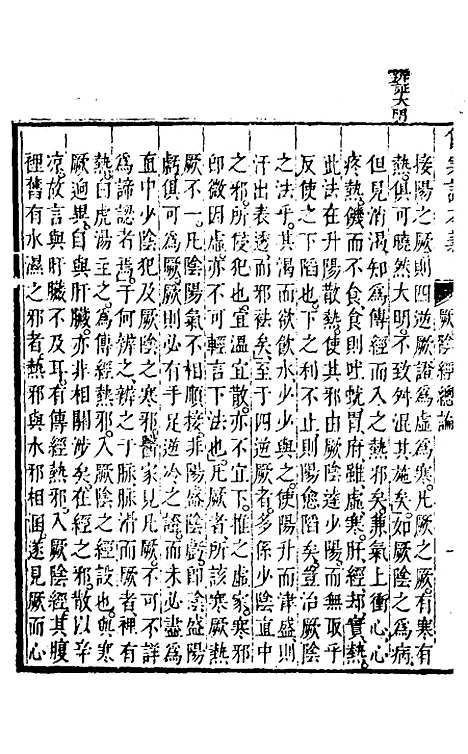 辨証大明
傷寒論本義
厥陰經總論
一
接陽之厥則四逆厥證為虛為寒凡厥之厥有寒有
熱俱可曉然大明不致舛混其施矣如厥陰之為病
但見消渴知為傳經而入之熱邪矣兼氣上衝心心
疼熱饑而不食食則吐蚘胃府雖虛寒肝經却實熱
此法在升陽散熱使其邪由厥陰達少陽而無取乎
反使之下蹈也下之利不止則陽愈陷矣豈治厥陰
之法乎渴而欲飲水少少與之使陽升而津盛則
汗出表透而邪袪矣至于四逆厥者多係少陰直中
之邪所使寒也宜溫宜散亦不宜下推之虛家寒邪
即微因虛亦不可輕言下法也凡厥者所該寒厥熱
厥不一凡陰陽氣不相順接非陽盛陰虧即陰盛陽
虧俱可為厥厥則必有手足逆冷之證而未必盡為
直中少陰犯及厥陰之寒邪醫家見凡厥不可不詳
為諦認者焉于何辨之辨之于脈脈滑而厥者裡有
熱白虎湯主之為傳經熱邪入厥陰之經設也與寒
厥逈異自與肝臟亦非相關涉矣在經之邪散以辛
凉故言與肝臟不及耳有傳經熱邪入厥陰經其腹
裡舊有水濕之邪者熱邪與水邪相溷遂見厥而心